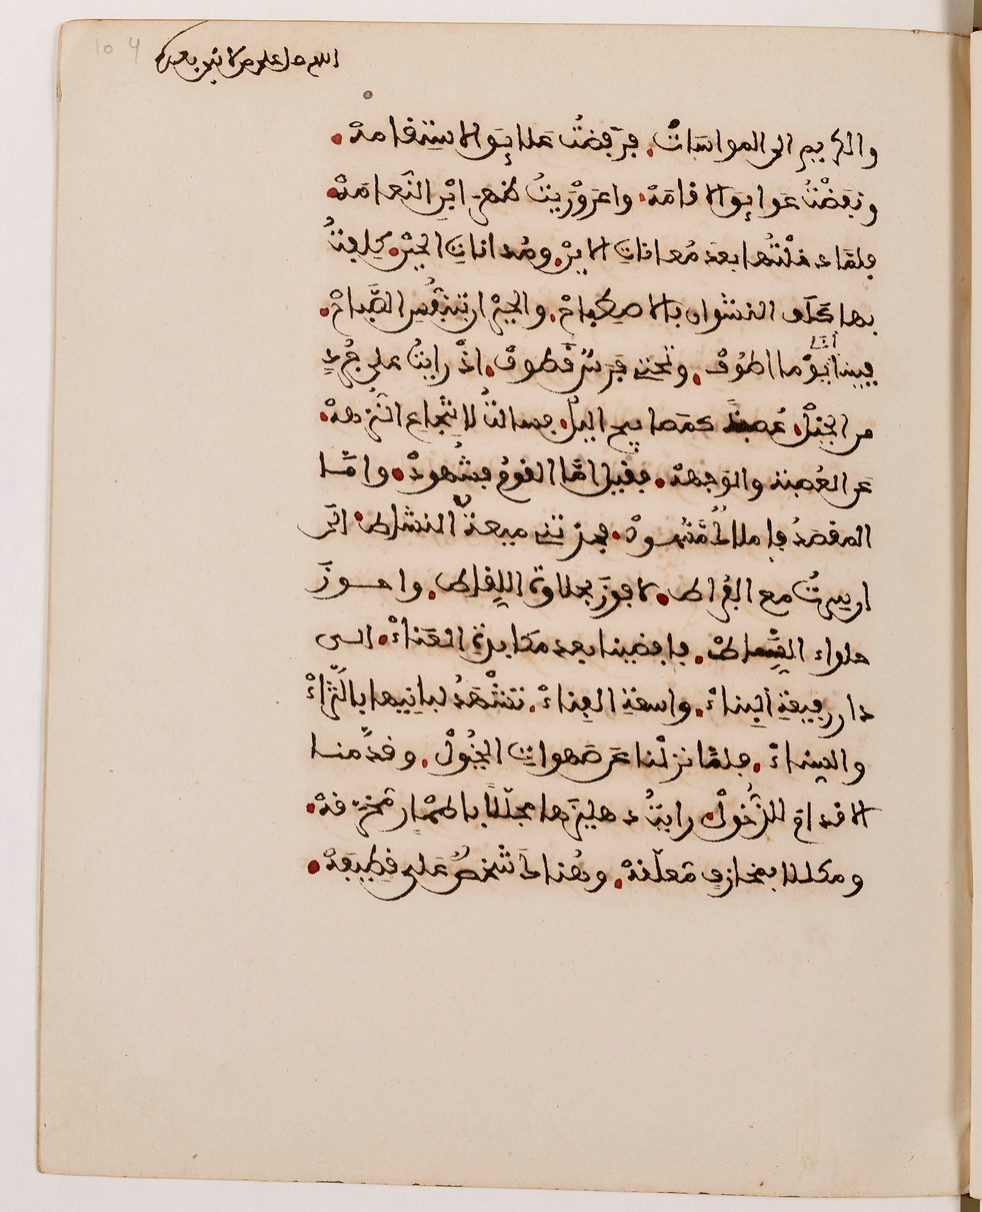 اللهم صل على من لا نبي بعده
والكريم الى المواسَاتْ. فرَفضتُ علايِقَ الاستقامهْ.
ونَفَضْتُ عَوايِقَ الاقامَهْ. واعرَوْرَيتُ ظهر ابن النَّعامَهْ.
فلمَّا دخلْتُها بعدَ مُعاناتِ الاينْ. ومُداناتِ الحَيْنْ. كلِفتُ
بها كَلَفَ النشوان بالاصطباحْ. والحيران بتنفُّسِ الصَّباحْ.
فبينا أنَا يوْمًا اطوُفْ. وتحتي فَرسٌ قَطوفْ. اذْ رايتُ على جُرْدٍ
من الخيْلْ. عُصبةً كمَصابيح اليلْ. فسالتُ لانتجاع النُّزههْ.
عن العُصبة والوَجههْ. فقيل امَّا القومُ فشُهودْ. وامَّا
المقصَدُ فإملاكٌ مَّشْهودْ. فحدتني ميعةُ النشاط. الى
ان سرتُ مع الفُرَّاط. لافوزَ بحلاوة اللقاط. واحوزَ
حلواء السِّماطْ. فافضينا بعد مكابدة العَناءْ. الى
دار رفيعةِ البِناءْ. واسعةِ الفِناءْ. تشْهَدُ لبانيها بالثَّراءْ
والسناءْ. فلمَّا نزلْنا عن صَهواتِ الخُيُولْ. وقدَّمنا
الاقدام للدُّخُولْ. رايتُ دهليزها مجلَّلًا باطمْارٍ مُّخرَّقهْ.
ومكللا بمخارفٍ مُّعلَّقهْ. وهُناكَ شخصٌ على قطيفَهْ.